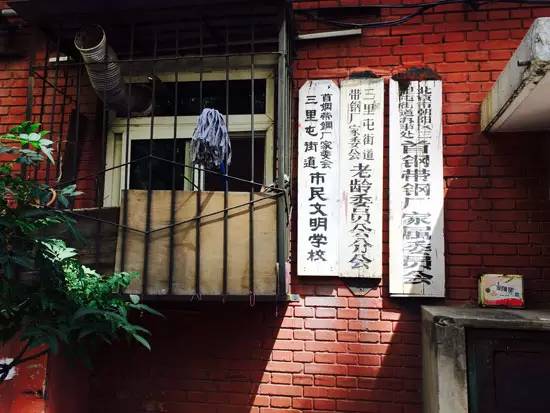 首钢带钢厂家委会
三里屯街道
市民文明学校
三里屯街道
带钢厂家委会
老龄委员会分会
北京市朝阳区三
里屯街道办事处
首钢带钢厂家属委员会